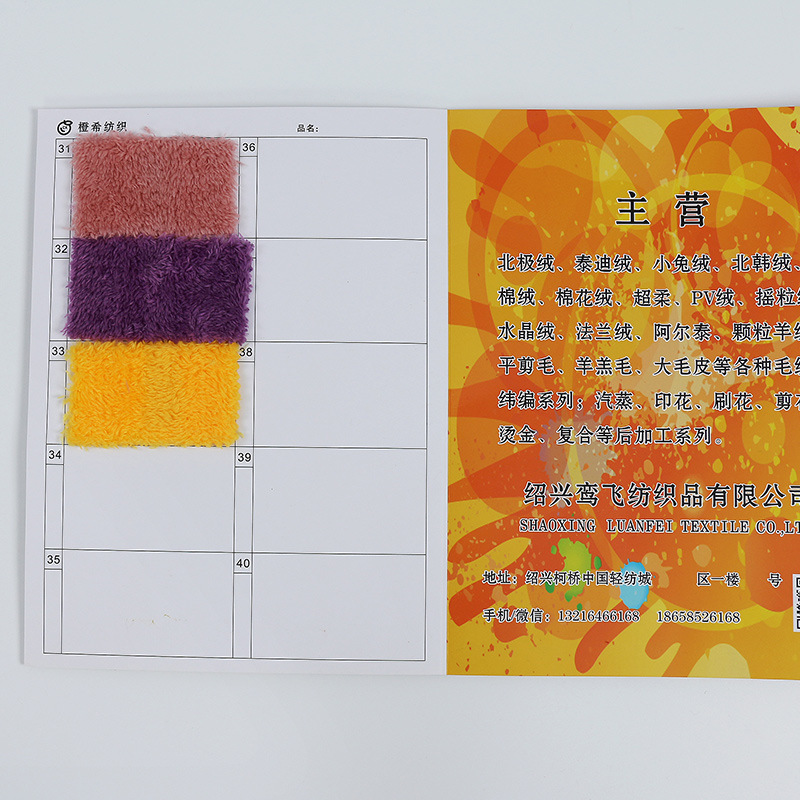 橙希纺织
品名:
31
36
32
33
38
34
39
35
40
主 营
北极绒、泰迪绒、小兔绒、北韩绒、
棉绒、棉花绒、超柔、PV绒、摇粒绒
水晶绒、法兰绒、阿尔泰、颗粒羊绒
平剪毛、羊羔毛、大毛皮等各种毛绒
纬编系列；汽蒸、印花、刷花、剪花
烫金、复合等后加工系列。
绍兴鸾飞纺织品有限公司
SHAOXING LUANFEI TEXTILE CO.,LT
地址：绍兴柯桥中国轻纺城 区一楼 号
手机/微信：13216466168 18658526168